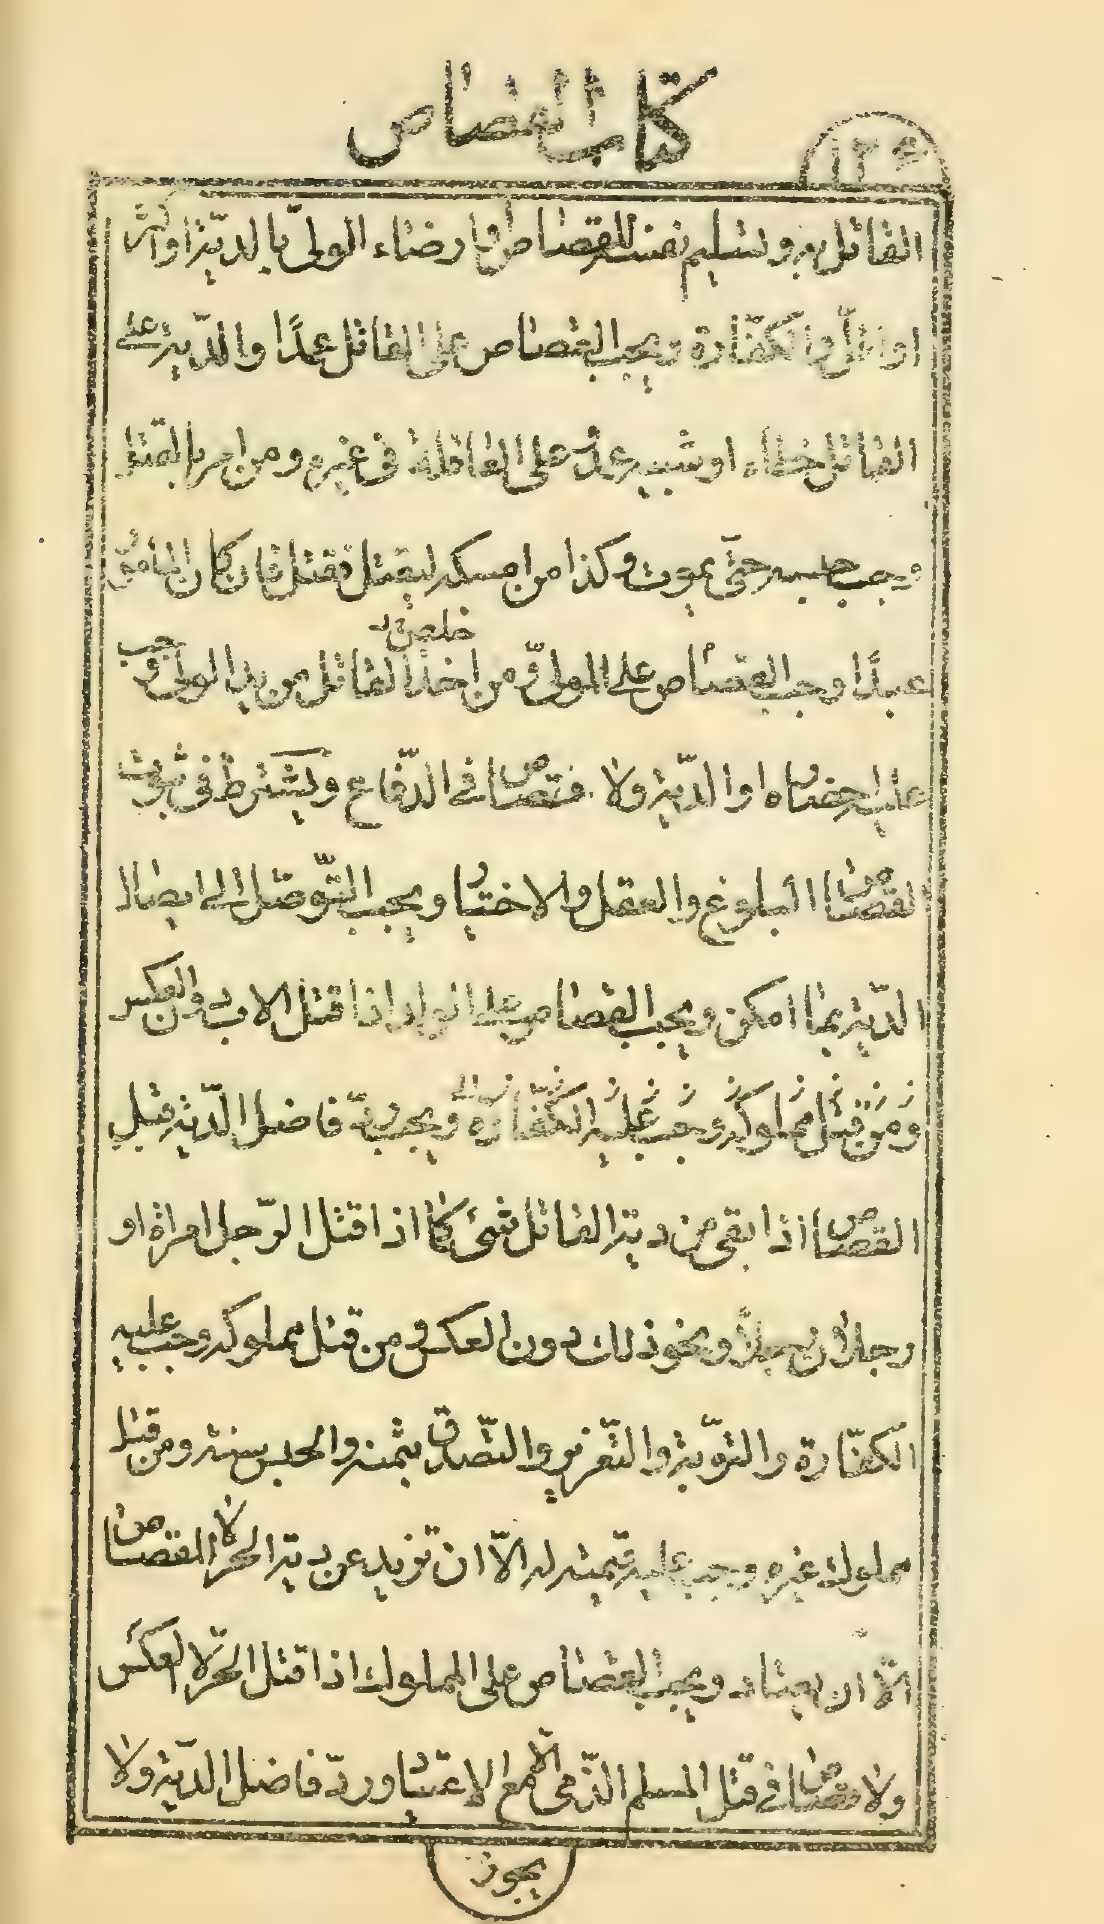 كتاب القصاص
القاتل به وتسليم نفسه للقصاص او ارضاء الولي بالدية او اكثر
او اقل والكفارة ويجب القصاص على القاتل عمدا والدية على
القاتل خطاء او شبيه عمد على العاقلة في غيره ومن امر بالقتل
وجب حبسه حتى يموت وكذا من امسكه ليقتل فقتل فان كان المأمور
عبدا وجب القصاص على المولى ومن اخذ القاتل من يد الولي وجب
خلصه
عليه احضاره او الدية ولا قصاص في الدفاع ويشترط في ثبوت
القصاص البلوغ والعقل والاختيار ويجب التوصل الى ايصال
الدية بما امكن ويجب القصاص على الولد اذا قتل الاب دون العكس
ومن قتل مملوكه وجب عليه الكفارة ويجب رد فاضل الدية قبل
القصاص اذا بقي من دية القاتل شئ كما اذا قتل الرجل امراة او
رجلان رجلا ونحو ذلك دون العكس ومن قتل مملوكه وجب عليه
الكفارة والتوبة والتعزير والتصدق بثمنه والحبس سنة ومن قتل
مملوك غيره وجب عليه قيمته له الا ان تزيد عن دية الحر لا القصاص
الا ان يعتاد ويجب القصاص على المملوك اذا قتل الحر لا العكس
ولا قصاص في قتل المسلم الذمي الا مع الاعتياد ورد فاضل الدية ولا
يجوز